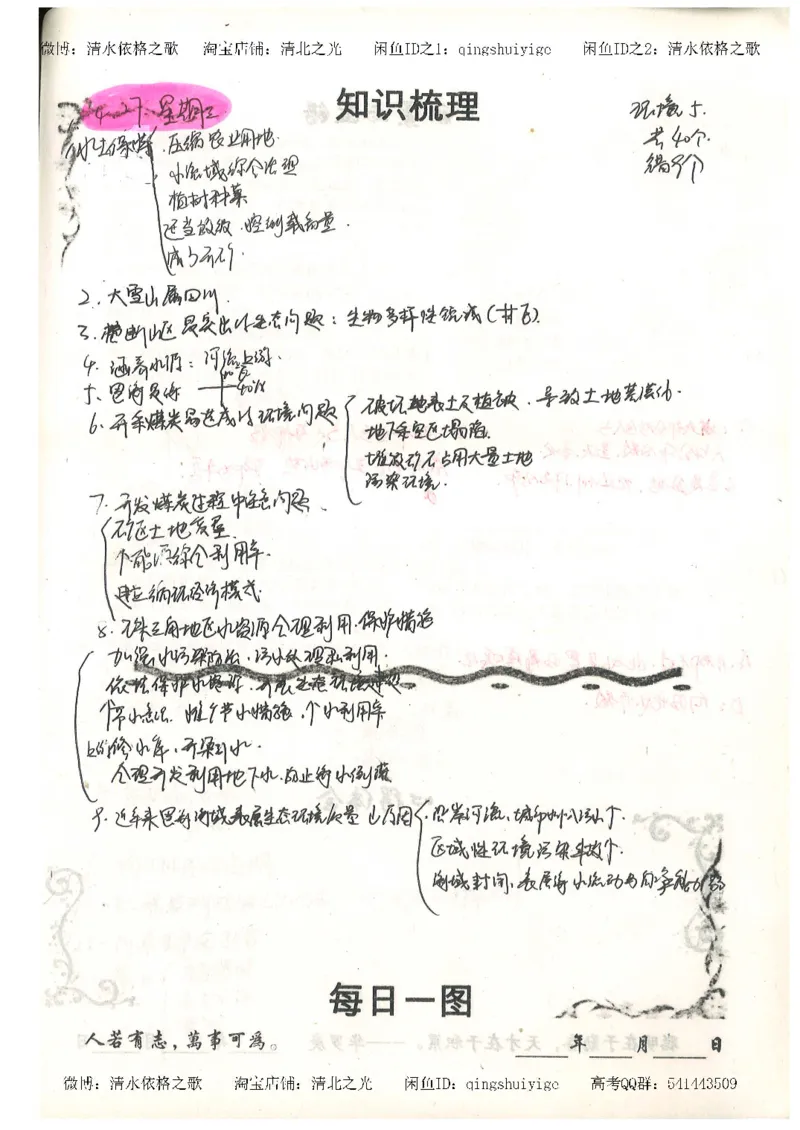 微博：清水依格之歌 淘宝店铺：清北之光 闲鱼ID之1：qingshuiyige 闲鱼ID之2：清水依格之歌
知识梳理
4.27 星期二
环境5.
共40个.
错9个
水土保持 压缩农业用地.
小流域综合治理
植树种草
适当放牧.控制载畜量.
减少开矿.
2.大雪山属四川.
3.横断山区最突出的生态问题：生物多样性锐减(甘6).
4.涵养水源：河流上游.
5.渤海
40°N
6.开采煤炭易造成的环境问题 破坏地表土及植被，导致土地荒漠化.
地下采空区塌陷.
堆放矿石占用大量土地
污染环境.
7.开发煤炭过程中注意问题.
矿区土地复垦.
个能源综合利用率.
建立循环经济模式.
8.三角地区水资源合理利用.保护措施
加强水污染防治，污水处理和利用.
依法保护水资源，开展生态环境建设
个节水意识.推个节水措施，个水利用率
修水库，开渠引水.
合理开发利用地下水.防止海水倒灌
9.近年来渤海海域表层生态环境质量的原因 沿岸河流、城市的入污水个.
区域性环境污染事故个.
海域封闭，表层海水流动与自净能力弱
每日一图
人若有志，萬事可為。
年 月 日
微博：清水依格之歌 淘宝店铺：清北之光 闲鱼ID：qingshuiyige 高考QQ群：541443509